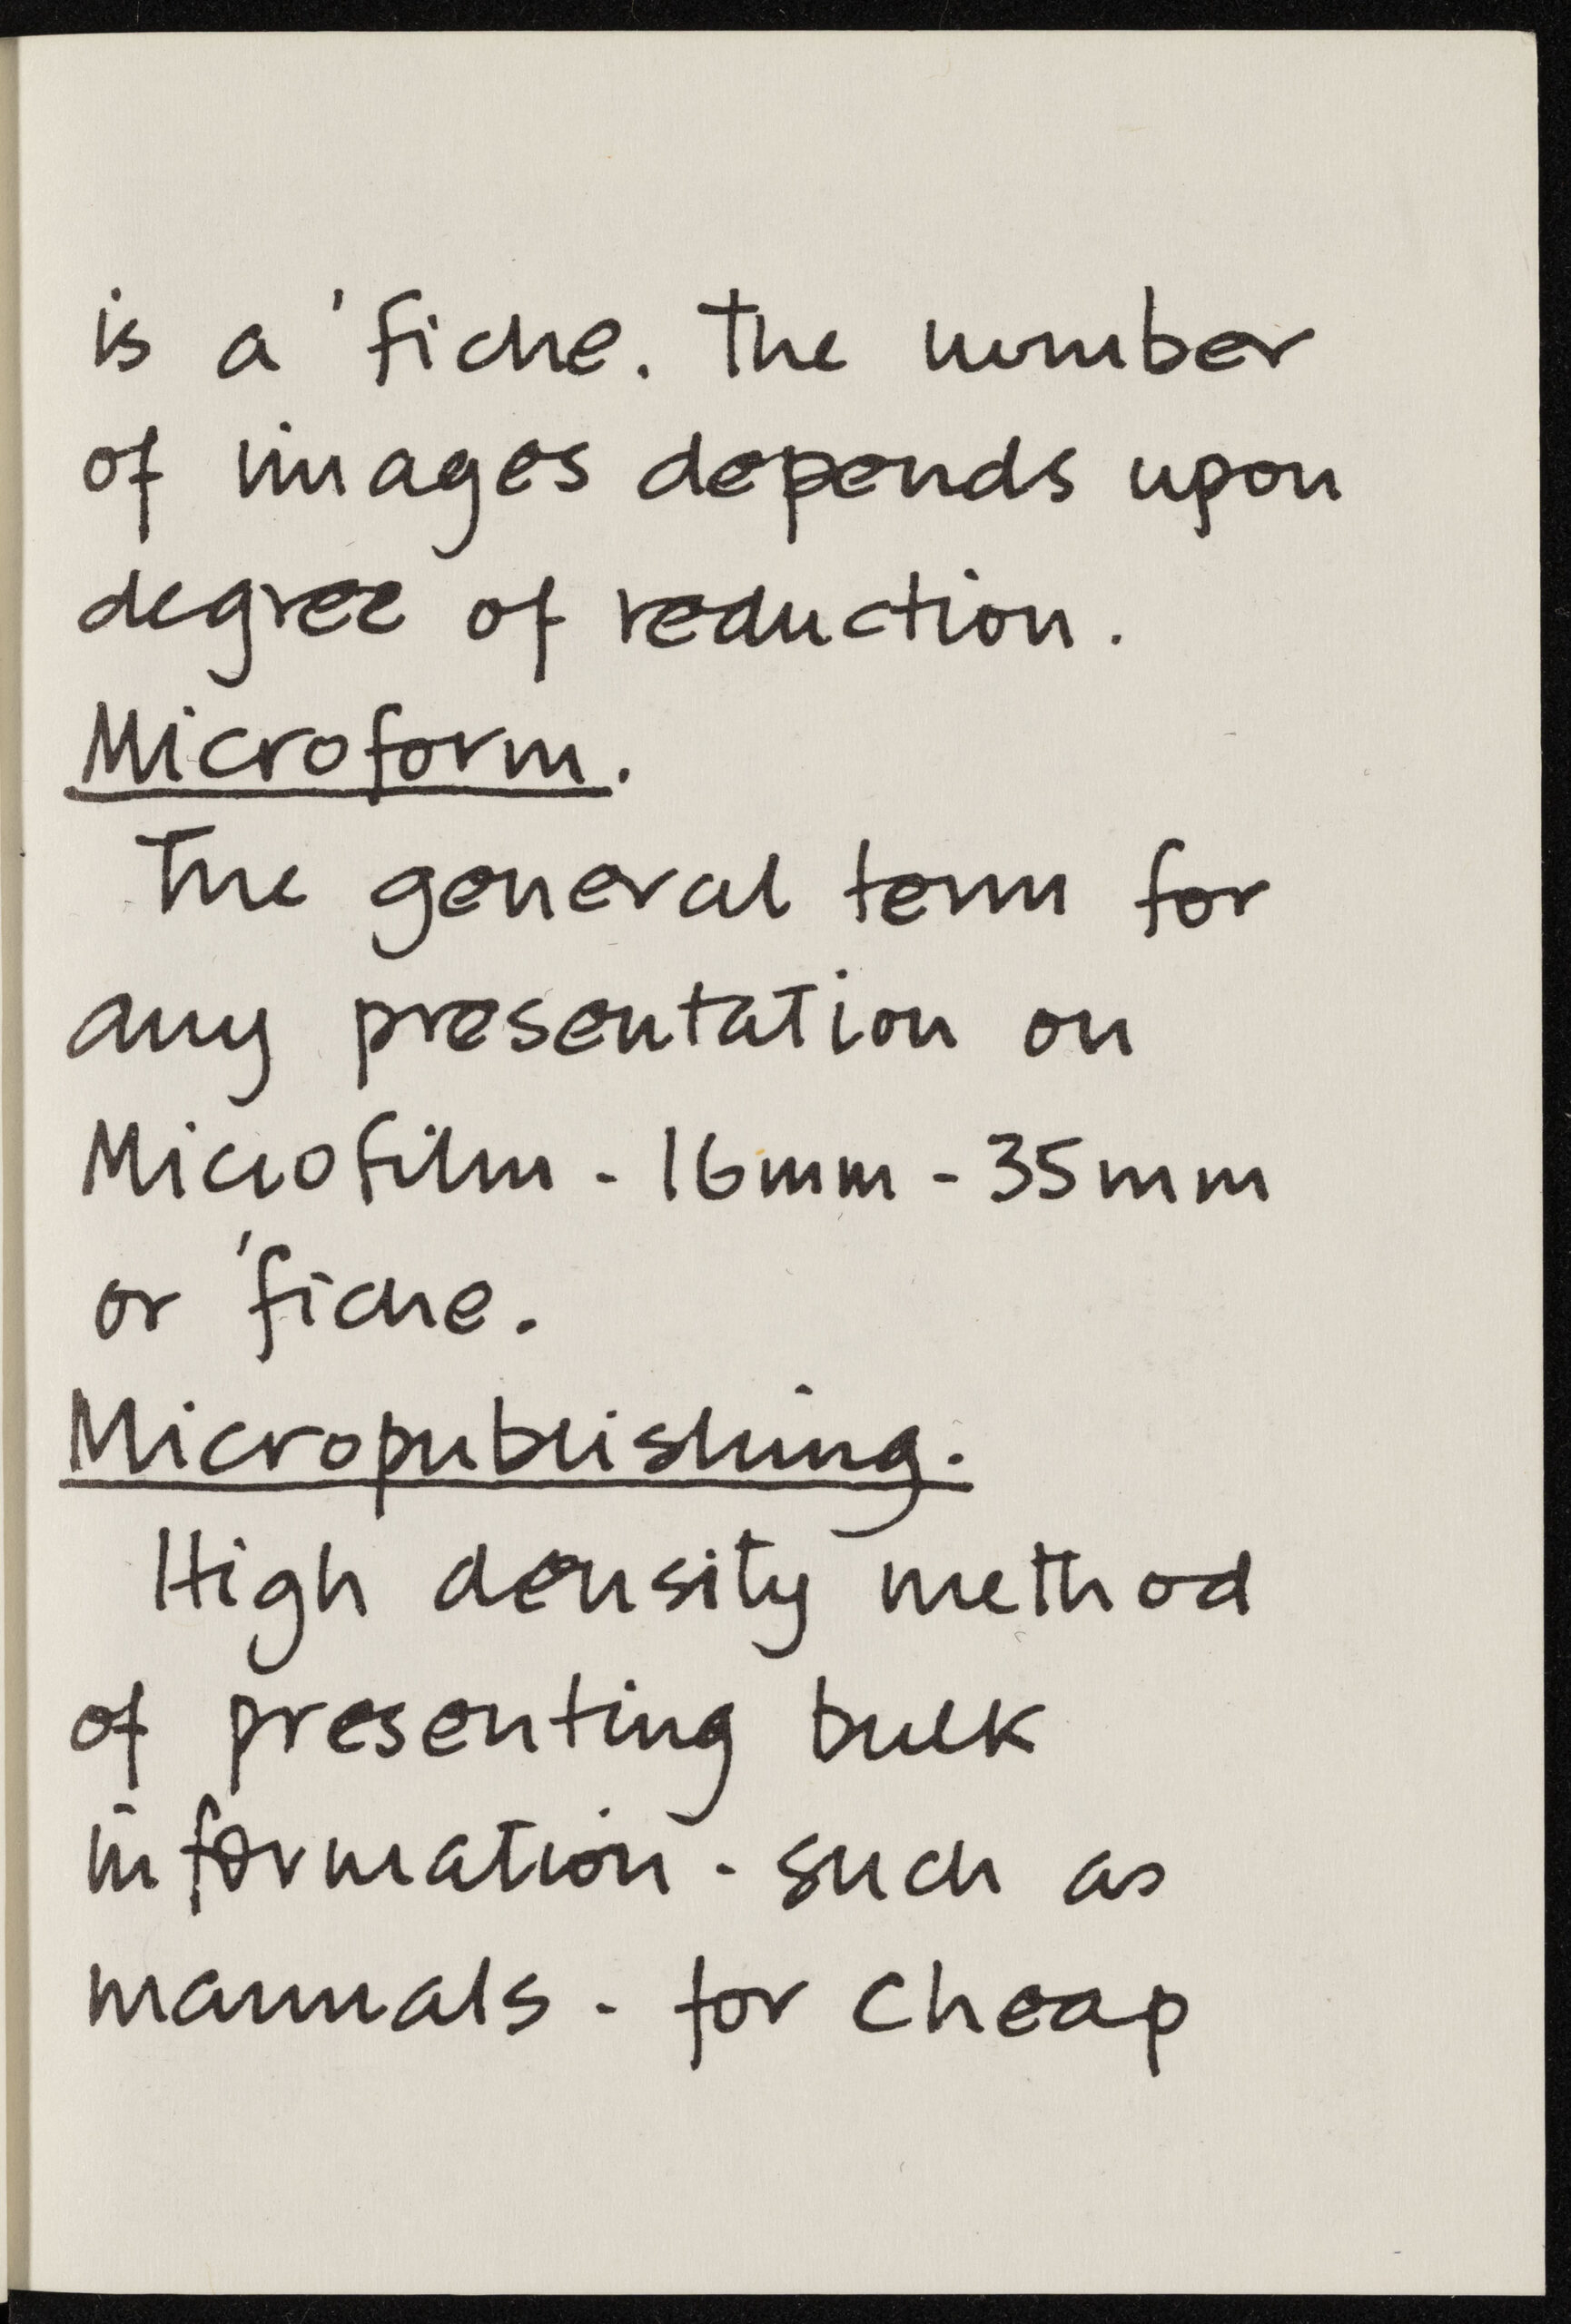 is a 'fiche. The number
of images depends upon
degree of reduction.
Microform.
The general term for
any presentation on
Microfilm - 16mm - 35mm
or 'fiche.
Micropublishing.
High density method
of presenting bulk
information - such as
manuals - for cheap